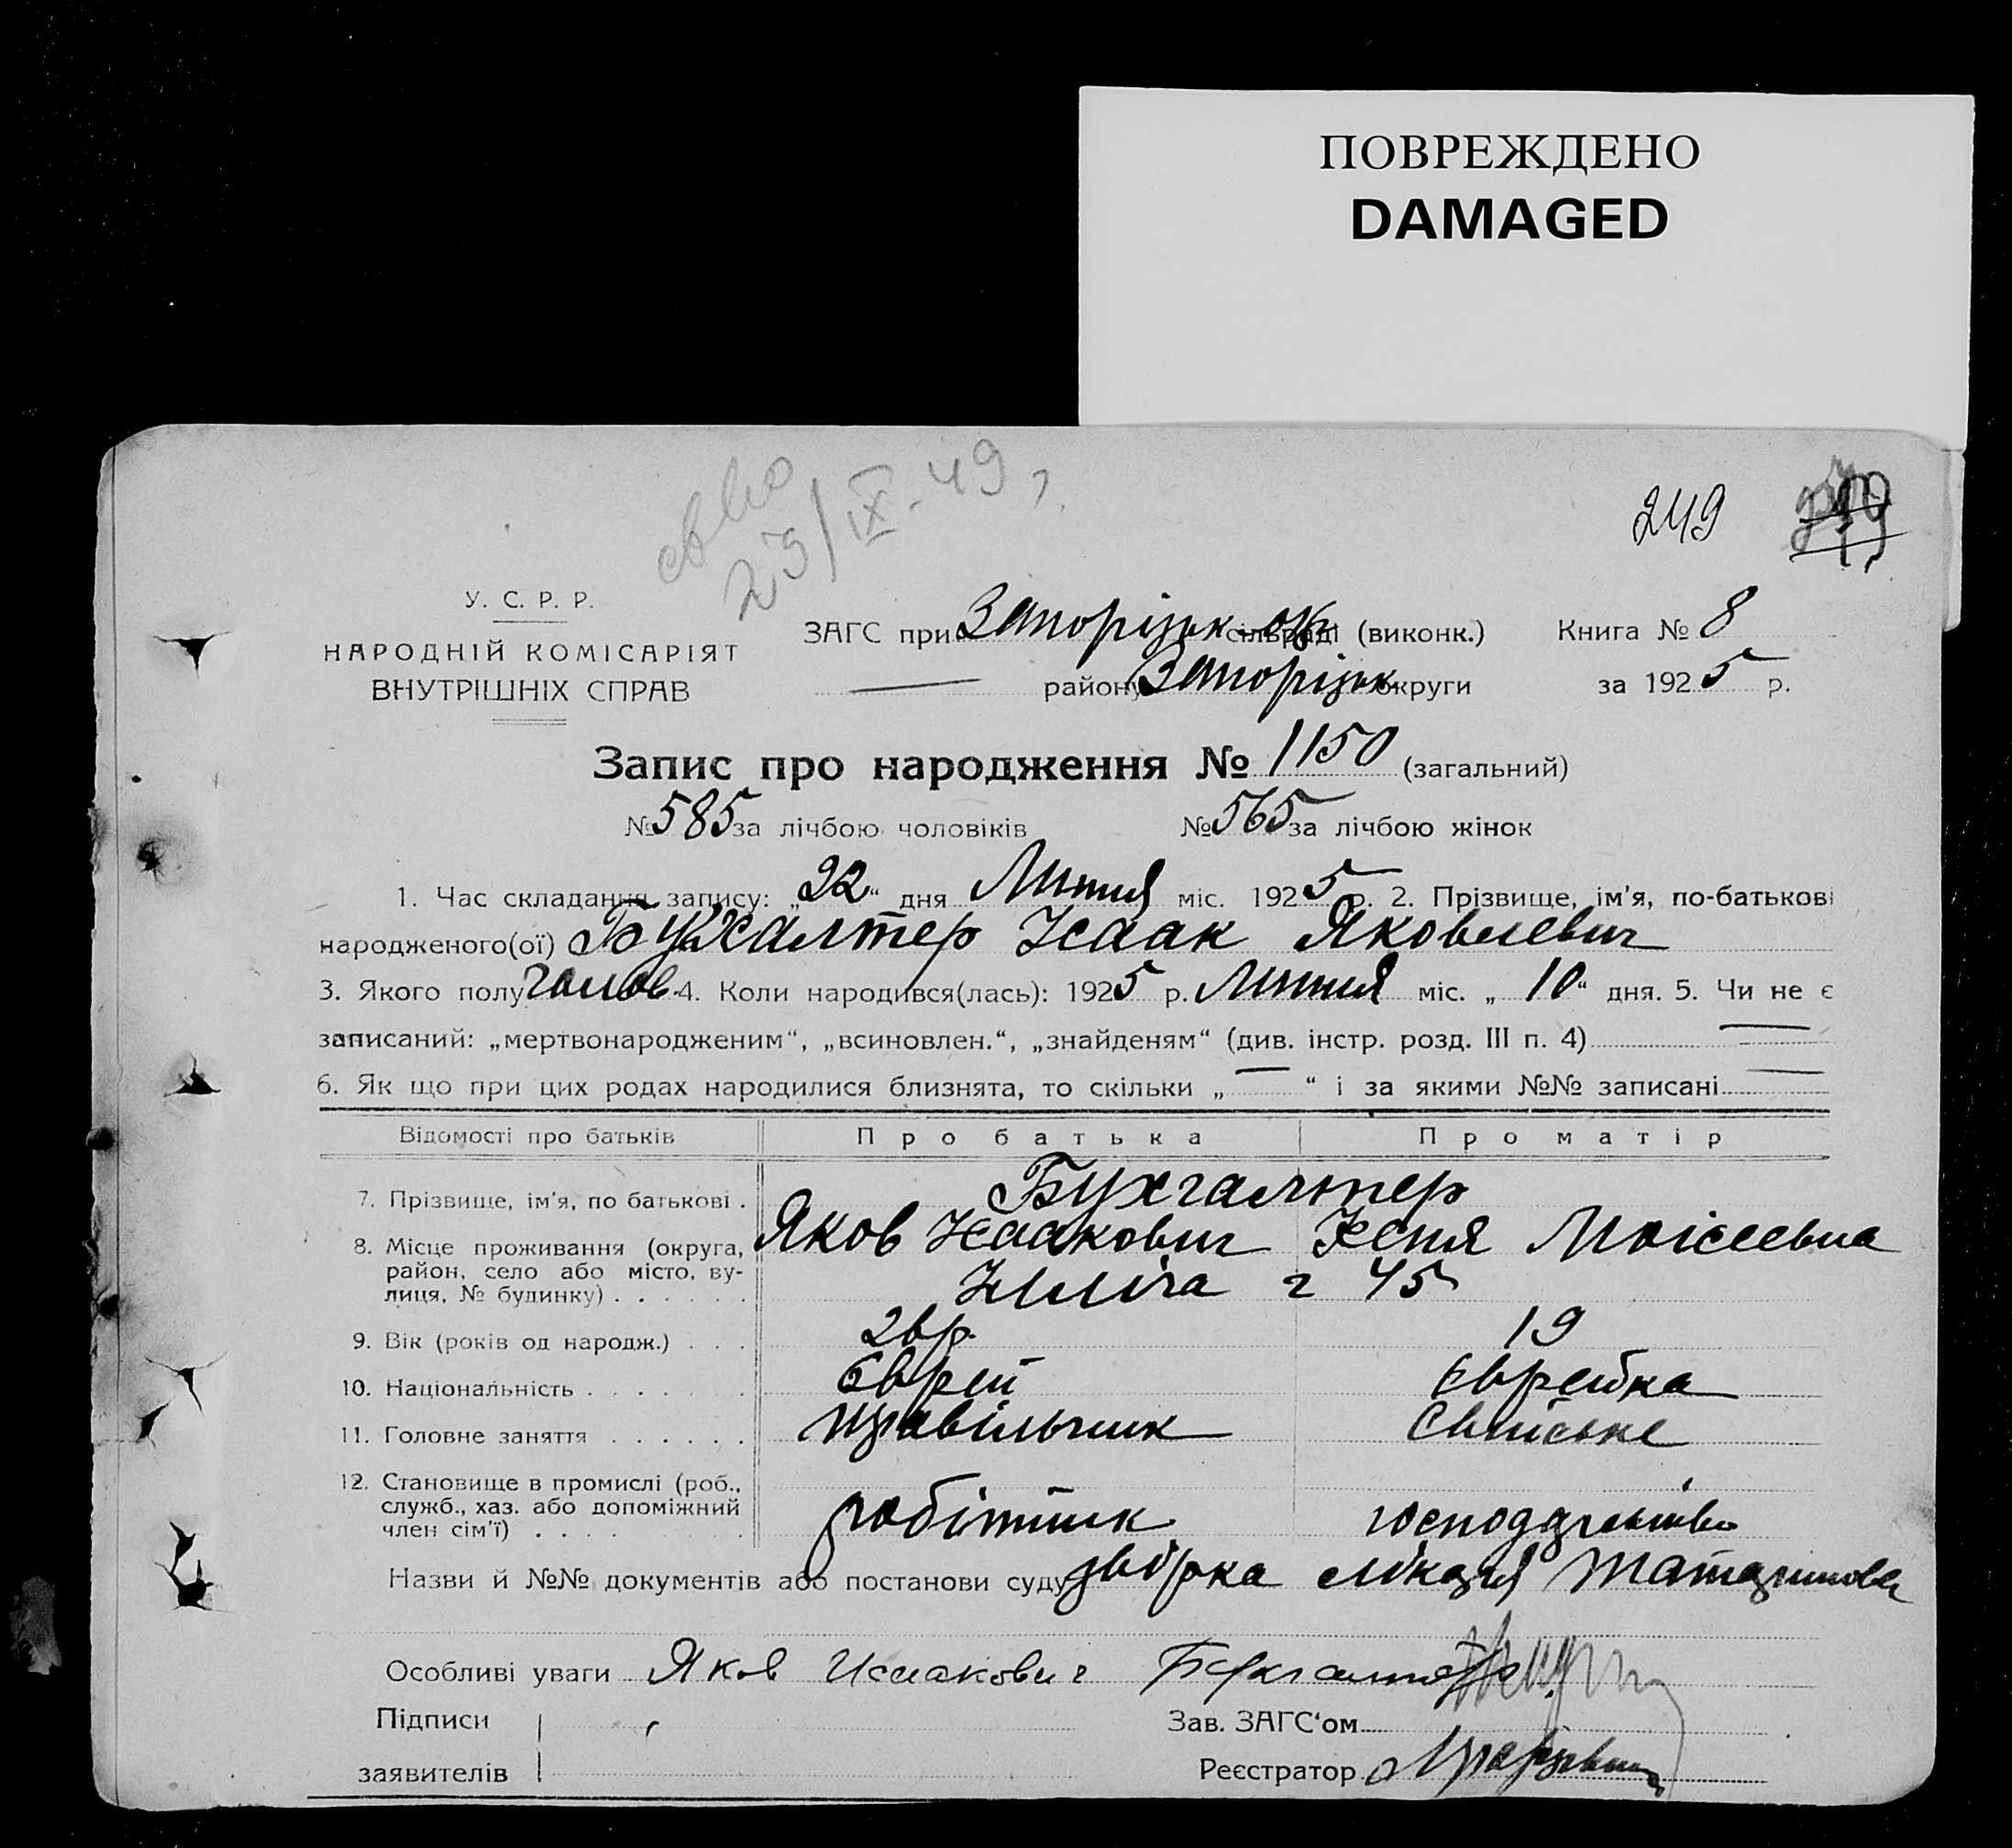 ПОВРЕЖДЕНО
DAMAGED
23/IX-49
249
У. С. Р. Р.
НАРОДНІЙ КОМІСАРІЯТ
ВНУТРІШНІХ СПРАВ
ЗАГС при Запорізьк. ок. сільраді (виконк.) Книга № 8
— району Запорізьк округи за 1925 р.
Запис про народження № 1150 (загальний)
№ 585 за лічбою чоловіків № 565 за лічбою жінок
1. Час складання запису: „22“ дня Липня міс. 1925 р. 2. Прізвище, ім'я, по-батькові
народженого(ої) Бухгалтер Исаак Яковлевич
3. Якого полу чолов. 4. Коли народився(лась): 1925 р. Липня міс. „10“ дня. 5. Чи не є
записаний: „мертвонародженим“, „всиновлен.“, „знайденям“ (див. інстр. розд. III п. 4) —
6. Як що при цих родах народилися близнята, то скільки „—“ і за якими №№ записані —
Відомості про батьків Про батька Про матір
7. Прізвище, ім'я, по батькові . Бухгалтер
Яков Исаакович Хеня Моісеевна
8. Місце проживання (округа, район, село або місто, вулиця, № будинку) . . . . . . Ілліча 2 45
9. Вік (років од народж.) . . . 26 р. 19
10. Національність . . . . . . . Єврей Єврейка
11. Головне заняття . . . . . . правільчик Свійське
12. Становище в промислі (роб., служб., хаз. або допоміжний член сім'ї) . . . . робітник господарство
Назви й №№ документів або постанови суду
Особливі уваги Яков Исаакович Бухгалтер
Підписи
Зав. ЗАГС'ом
заявителів
Реєстратор